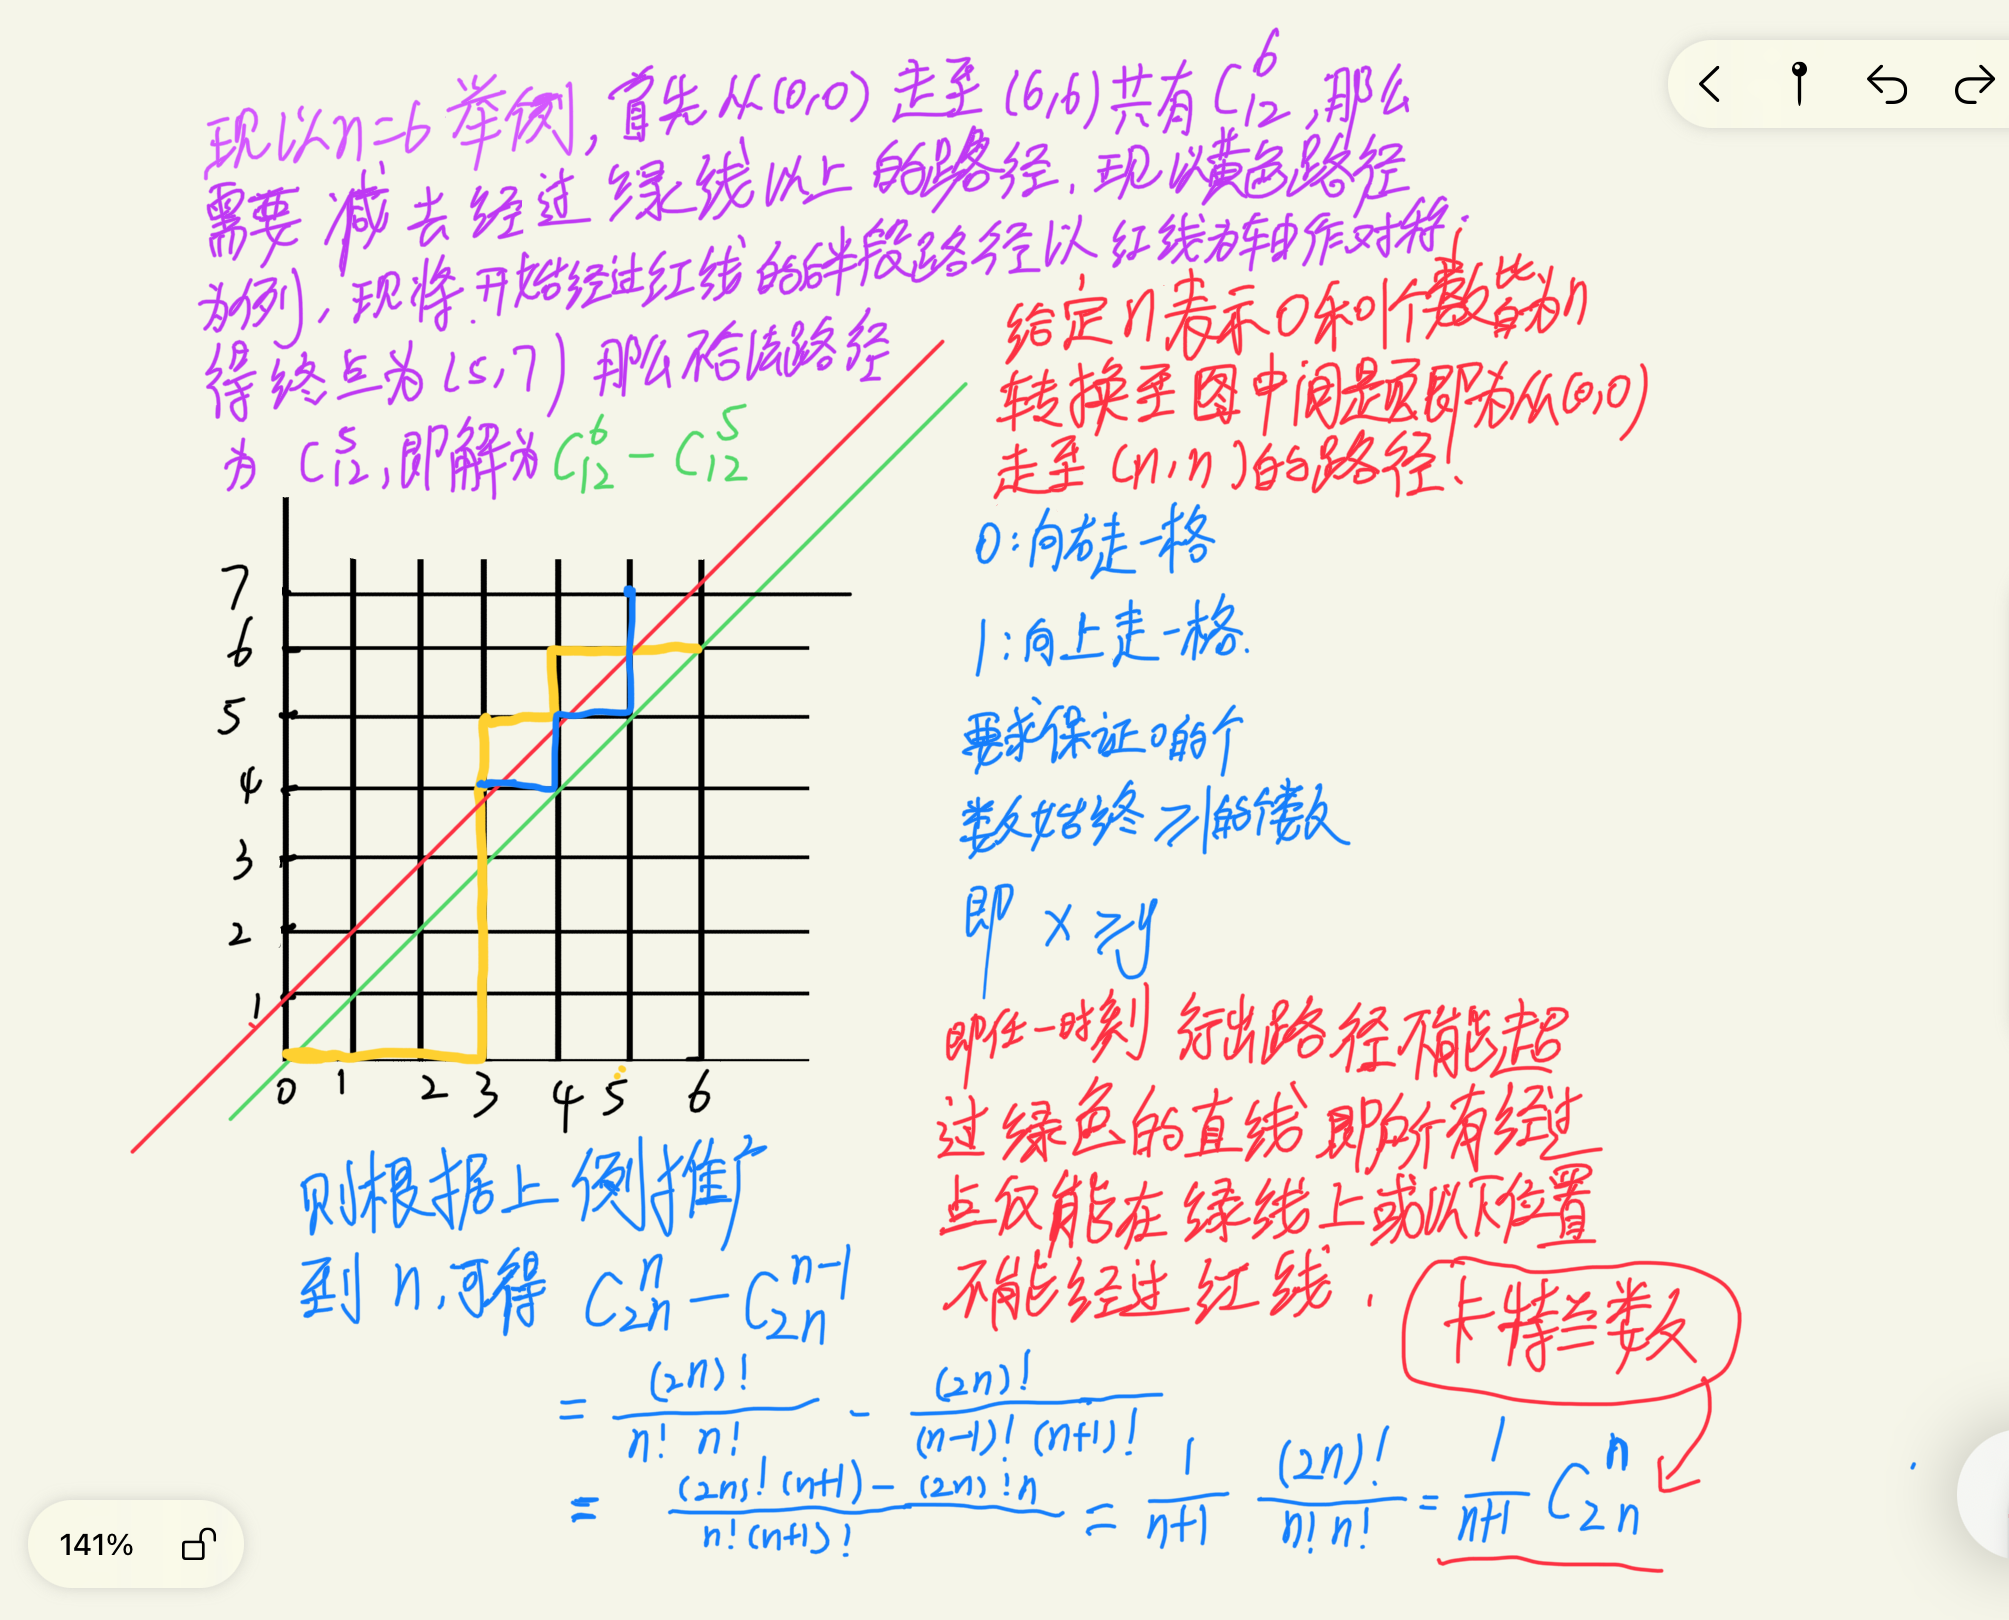 现以n=6举例,首先从(0,0)走至(6,6)共有C₁₂⁶,那么
需要减去经过绿线以上的路径.现以黄色路径
为例,现将.开始经过红线的后半段路径以红线为轴作对称.
得终点为(5,7)那么不合法路径
为 C₁₂⁵,即解为C₁₂⁶-C₁₂⁵
给定n表示0和1个数皆为n
转换至图中问题即为从(0,0)
走至(n,n)的路径!
0:向右走一格
1:向上走一格.
要求保证0的个
数始终≥1的个数
即 x≥y
即任一时刻 行出路径不能超
过绿色的直线即所有经过
点仅能在绿线上或以下位置
不能经过红线.
7
6
5
4
3
2
1
0 1 2 3 4 5 6
则根据上例推广
到n,可得 C₂ₙⁿ-C₂ₙⁿ⁻¹
卡特兰数
= (2n)!/(n! n!) - (2n)!/((n-1)! (n+1)!)
= ((2n)!(n+1)-(2n)!n)/(n!(n+1)!) = 1/(n+1) (2n)!/(n! n!) = 1/(n+1) C₂ₙⁿ
141%